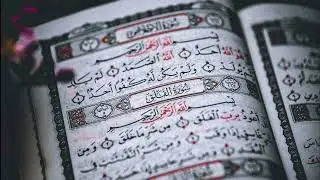 سُورَةُ الإِخْلَاصِ
بِسْمِ اللَّهِ الرَّحْمَٰنِ الرَّحِيمِ
هُوَ اللَّهُ أَحَدٌ ۝ اللَّهُ الصَّمَدُ ۝ لَمْ يَلِدْ
وَلَمْ يُولَدْ ۝ وَلَمْ يَكُن لَّهُ كُفُوًا أَحَدٌ ۝
سُورَةُ الْفَلَقِ
بِسْمِ اللَّهِ الرَّحْمَٰنِ الرَّحِيمِ
أَعُوذُ بِرَبِّ الْفَلَقِ ۝ مِن شَرِّ مَا خَلَقَ ۝ وَمِن
غَاسِقٍ إِذَا وَقَبَ ۝ وَمِن شَرِّ النَّفَّٰثَٰتِ فِي